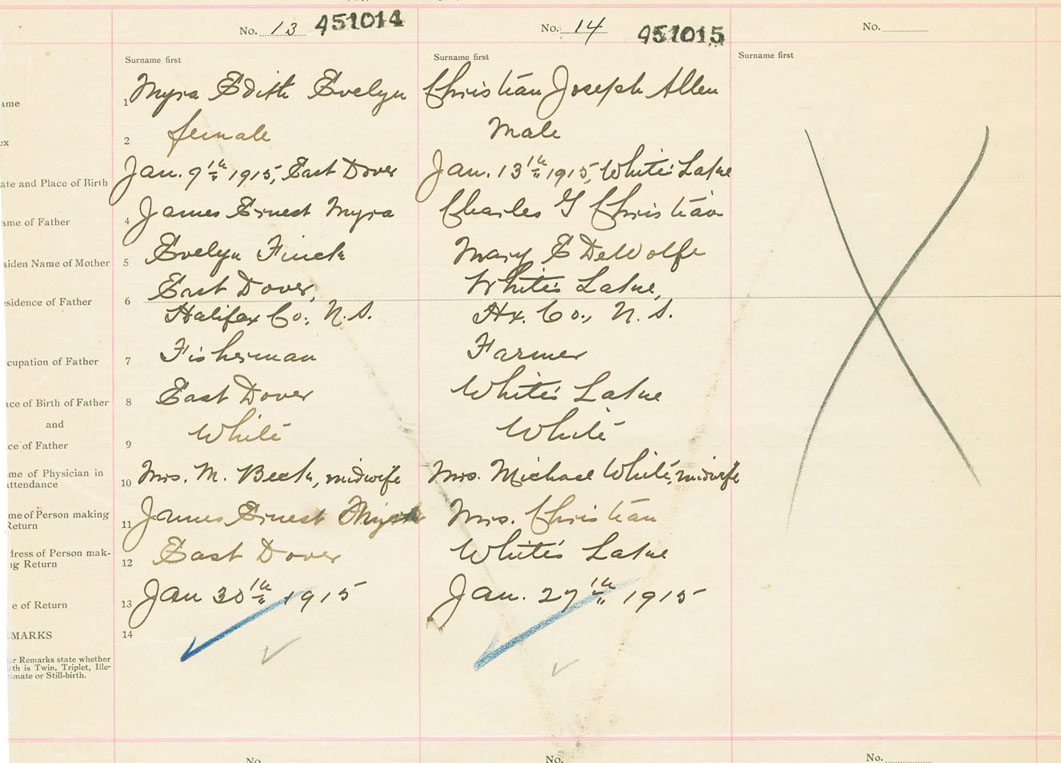 No. 13 451014
No. 14 451015
No.
Surname first
Surname first
Surname first
ame
1 Myra Edith Evelyn
Christian Joseph Allen
ex
2 female
Male
ate and Place of Birth
3 Jan. 9th 1915, East Dover
Jan. 13th 1915, White's Lake
ame of Father
4 James Ernest Myra
Charles G Christian
aiden Name of Mother
5 Evelyn Finck
Mary E DeWolfe
esidence of Father
6 East Dover,
Halifax Co., N.S.
White's Lake,
Hx. Co., N.S.
cupation of Father
7 Fisherman
Farmer
ace of Birth of Father
8 East Dover
White's Lake
and
ce of Father
9 White
White
me of Physician in
attendance
10 Mrs. M. Beck, midwife
Mrs. Michael White, midwife
me of Person making
Return
11 James Ernest Myra
Mrs. Christian
dress of Person mak-
ng Return
12 East Dover
White's Lake
e of Return
13 Jan 30th 1915
Jan. 27th 1915
MARKS
14
er Remarks state whether
th is Twin, Triplet, Ille-
imate or Still-birth.
No.
No.
No.